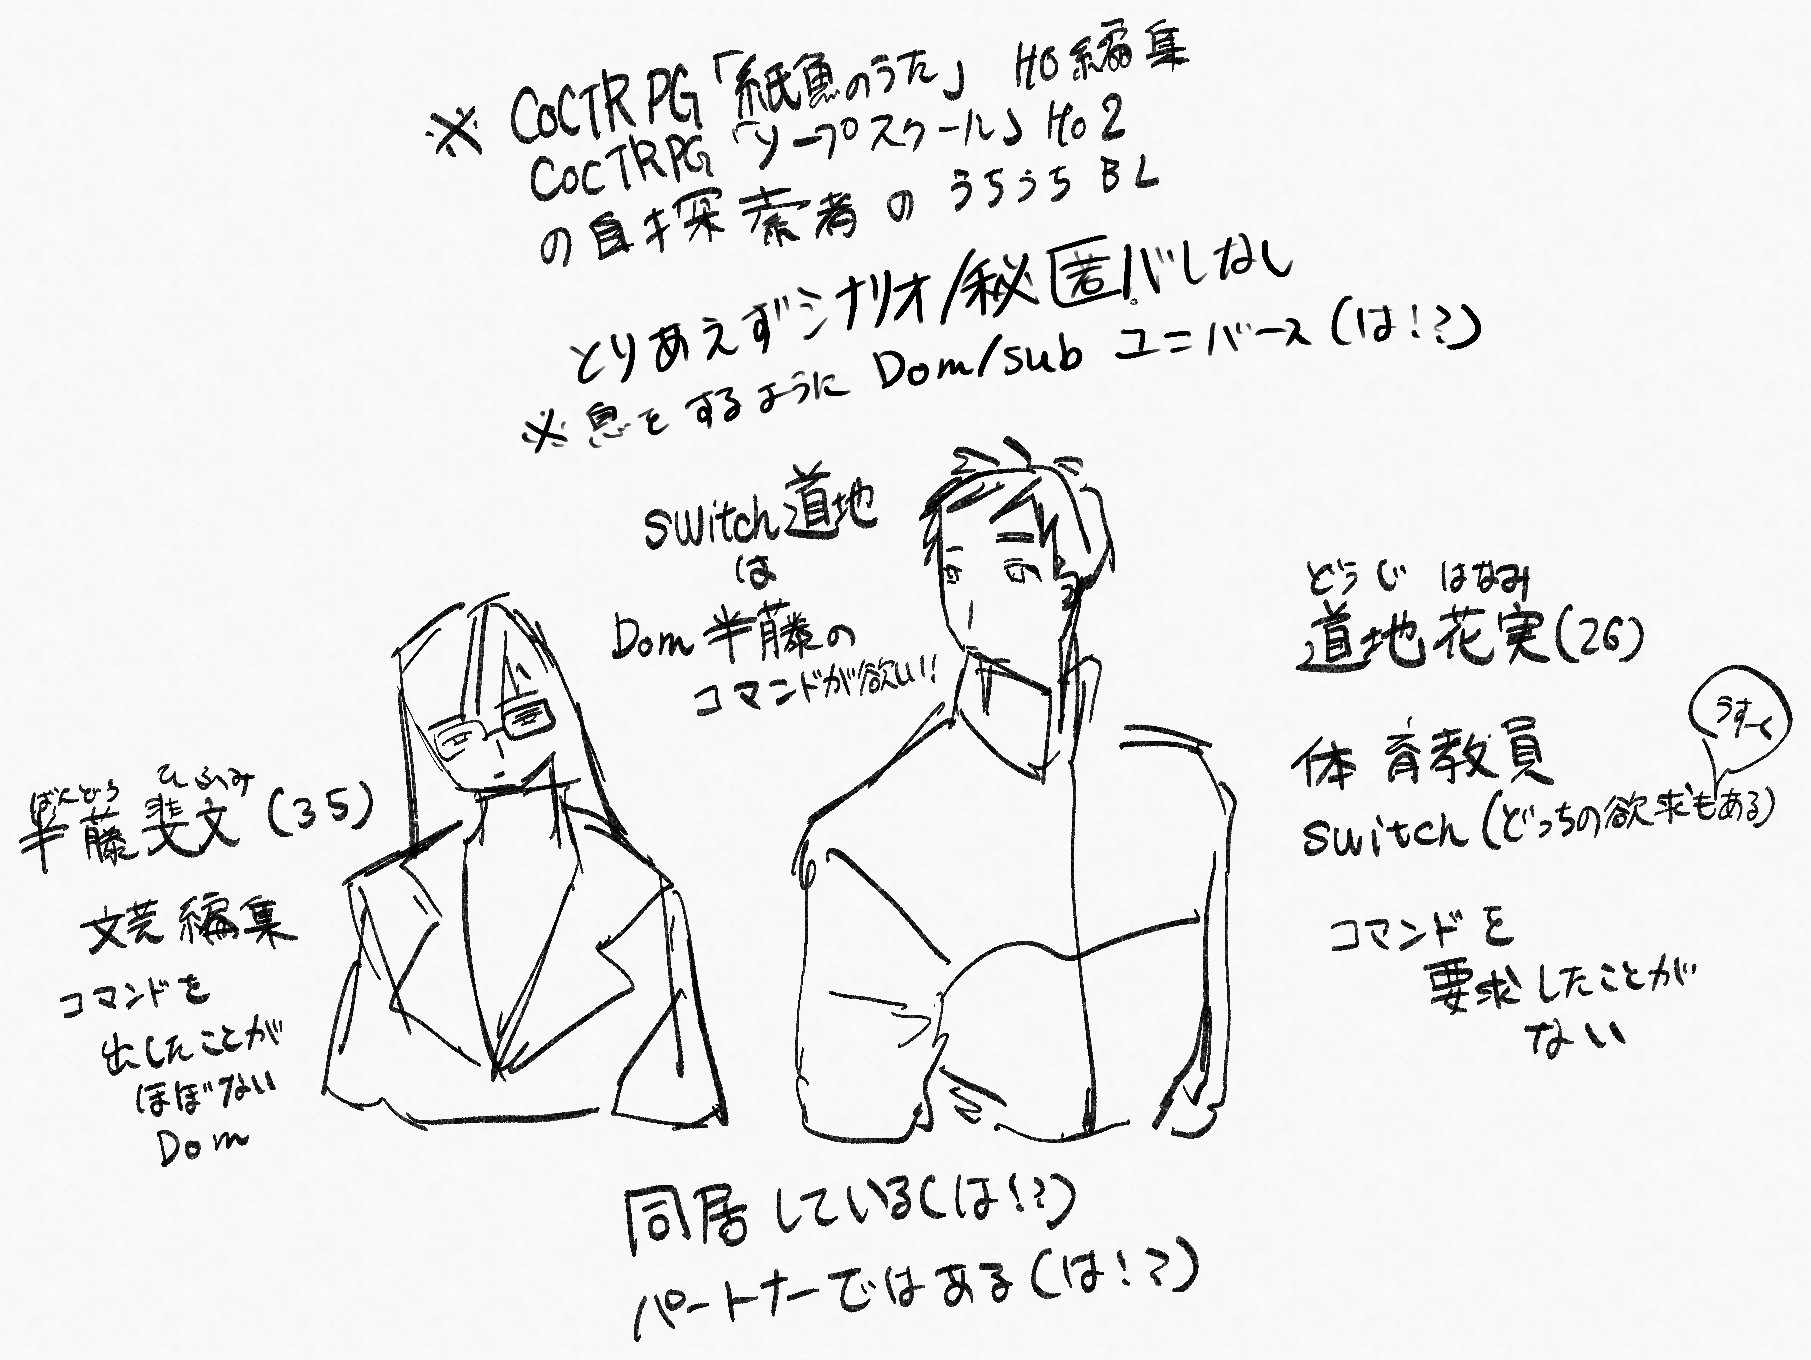 ※ CoCTRPG「紙魚のうた」 HO編集
CocTRPG「ソープスクール」Ho2
の自探索者のうちうちBL
とりあえずシナリオ/秘匿バレなし
※息をするようにDom/subユニバース(は!?)
switch道地
は
Dom半藤の
コマンドが欲しい!!
どうじ はなみ
道地花実(26)
体育教員
うすーく
switch(どっちの欲求もある)
コマンドを
要求したことが
ない
ばんどう ひふみ
半藤斐文(35)
文芸編集
コマンドを
出したことが
ほぼない
Dom
同居している(は!?)
パートナーではある(は!?)